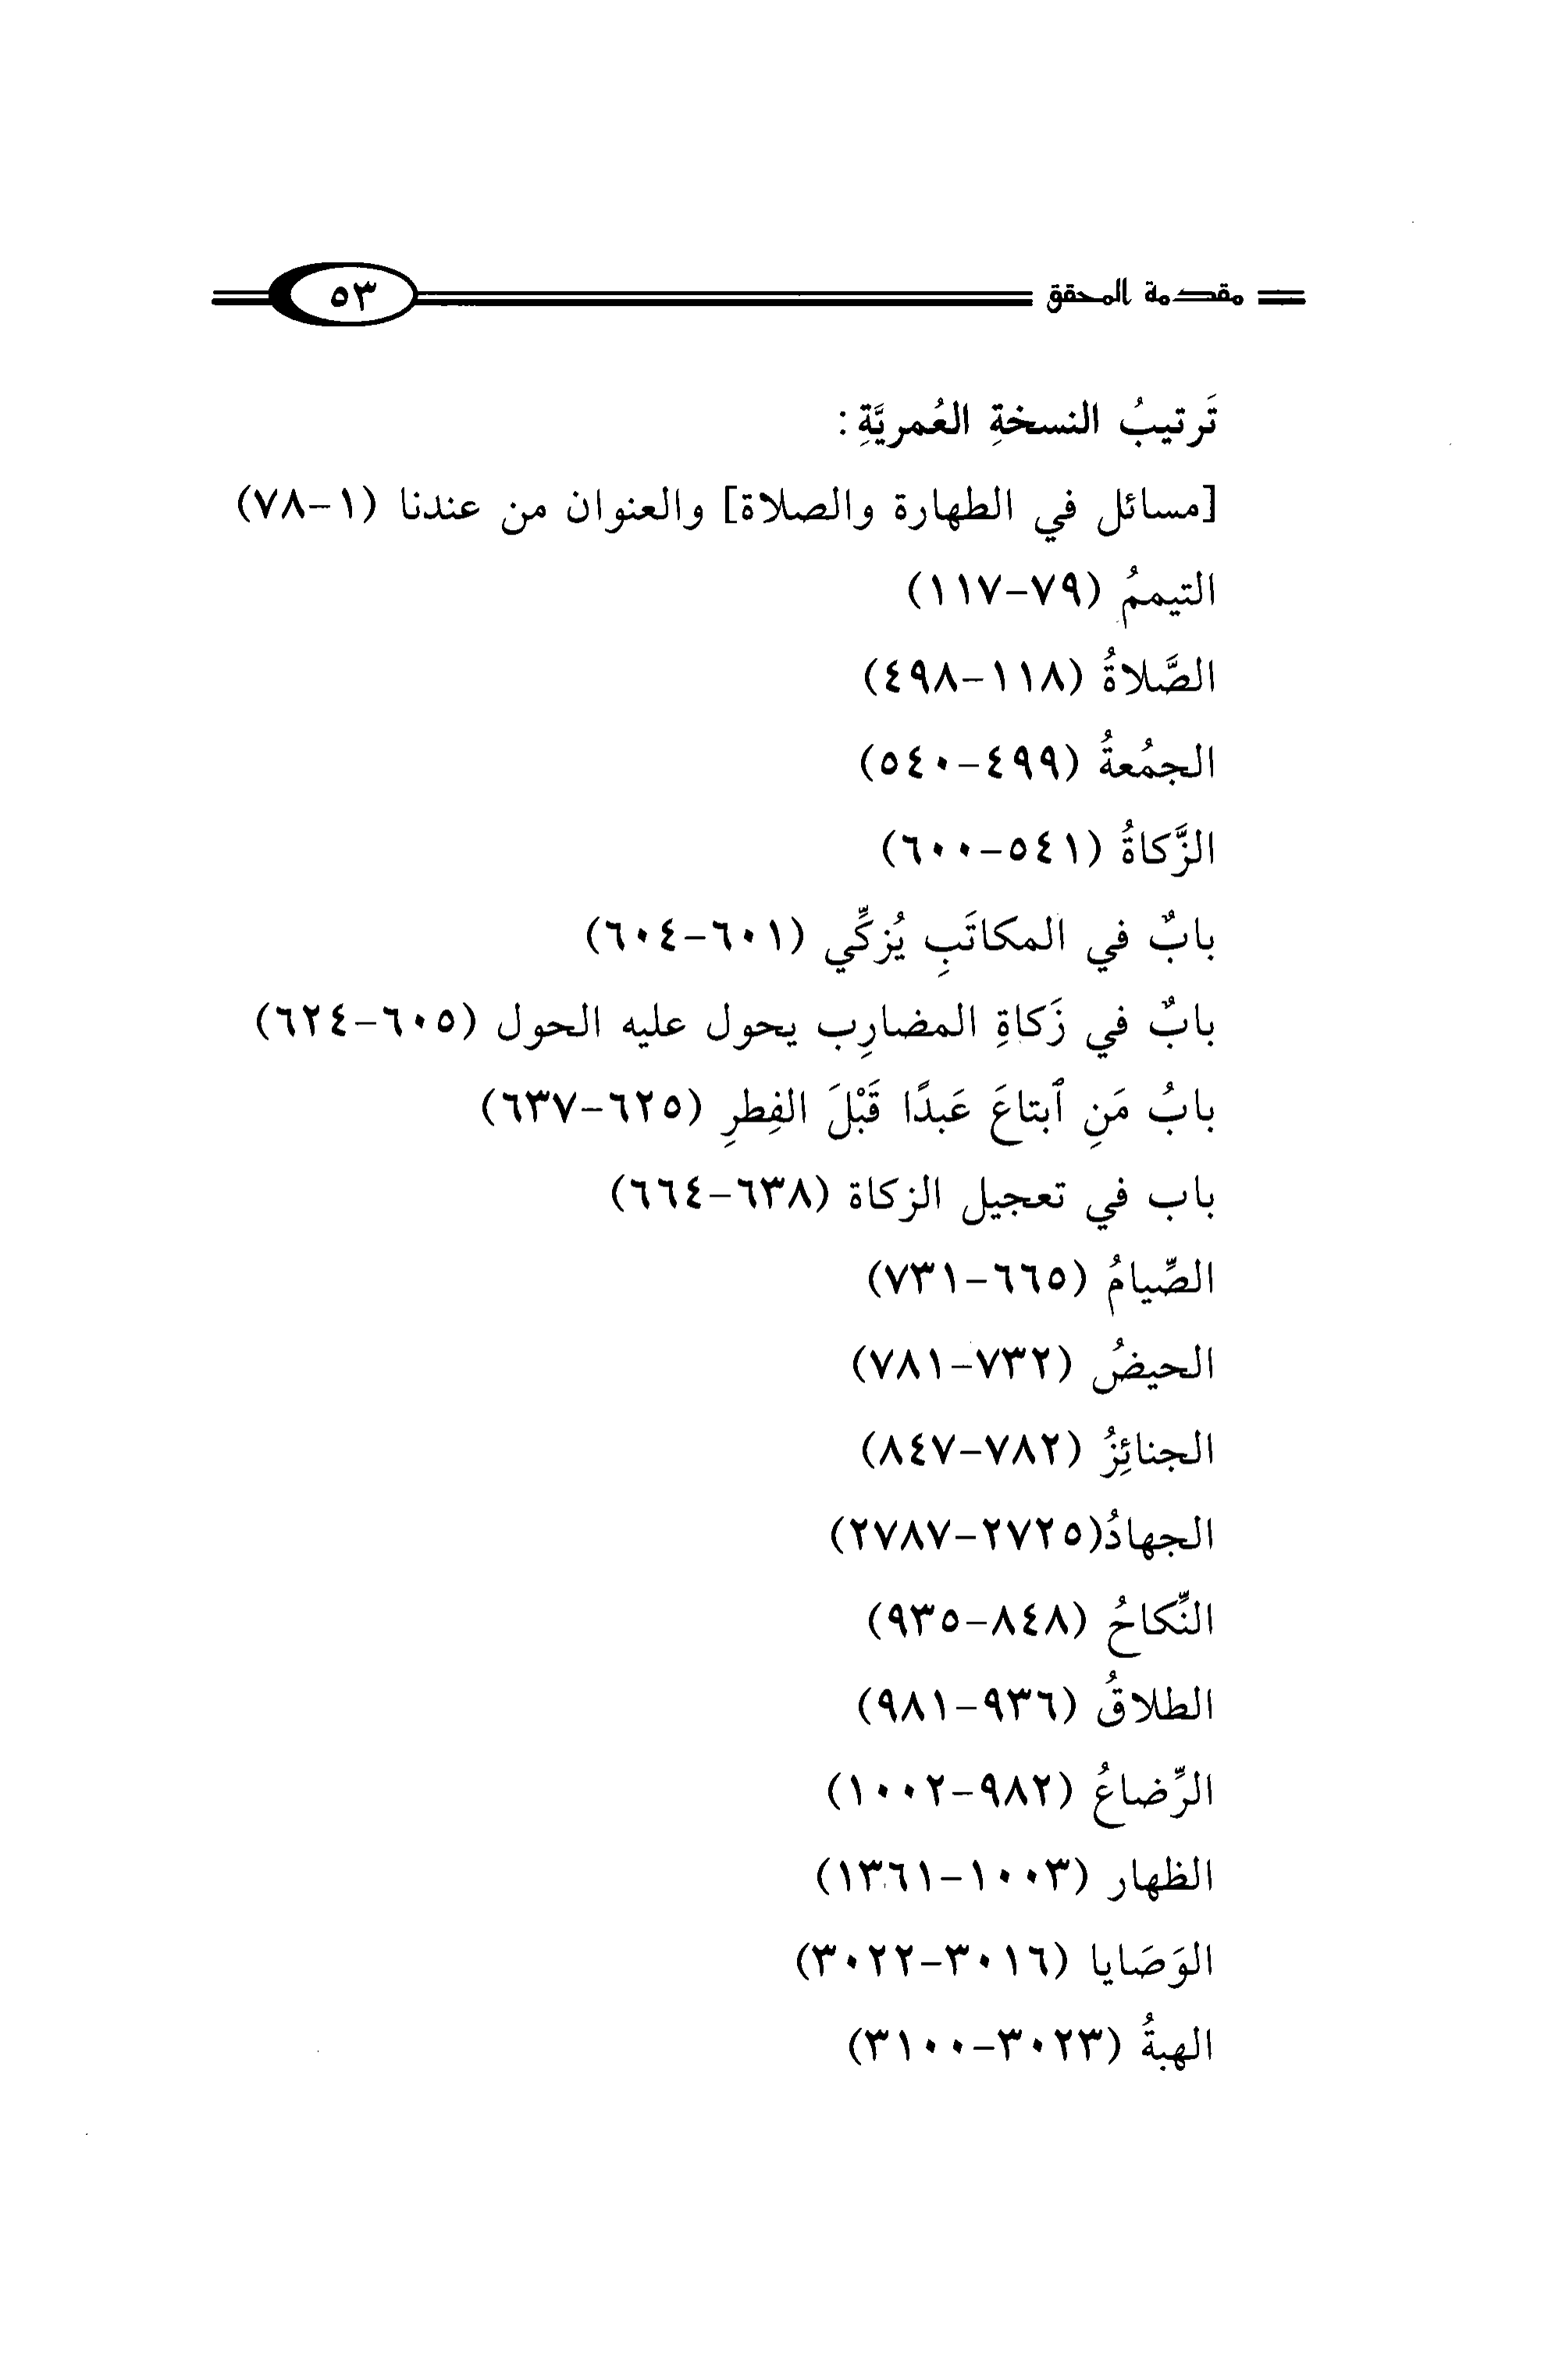 مقدمة المحقق ٥٣
تَرتيبُ النسخةِ العُمريَّةِ:
[مسائل في الطهارة والصلاة] والعنوان من عندنا (١-٧٨)
التيممُ (٧٩-١١٧)
الصَّلاةُ (١١٨-٤٩٨)
الجمُعةُ (٤٩٩-٥٤٠)
الزَّكاةُ (٥٤١-٦٠٠)
بابٌ في المكاتَبِ يُزكِّي (٦٠١-٦٠٤)
بابٌ في زَكاةِ المضارِب يحول عليه الحول (٦٠٥-٦٢٤)
بابُ مَنِ ٱبتاعَ عَبدًا قَبْلَ الفِطرِ (٦٢٥-٦٣٧)
باب في تعجيل الزكاة (٦٣٨-٦٦٤)
الصِّيامُ (٦٦٥-٧٣١)
الحيضُ (٧٣٢-٧٨١)
الجنائِزُ (٧٨٢-٨٤٧)
الجهادُ(٢٧٢٥-٢٧٨٧)
النِّكاحُ (٨٤٨-٩٣٥)
الطلاقُ (٩٣٦-٩٨١)
الرِّضاعُ (٩٨٢-١٠٠٢)
الظهار (١٠٠٣-١٣٦١)
الوَصَايا (٣٠١٦-٣٠٢٢)
الهبةُ (٣٠٢٣-٣١٠٠)